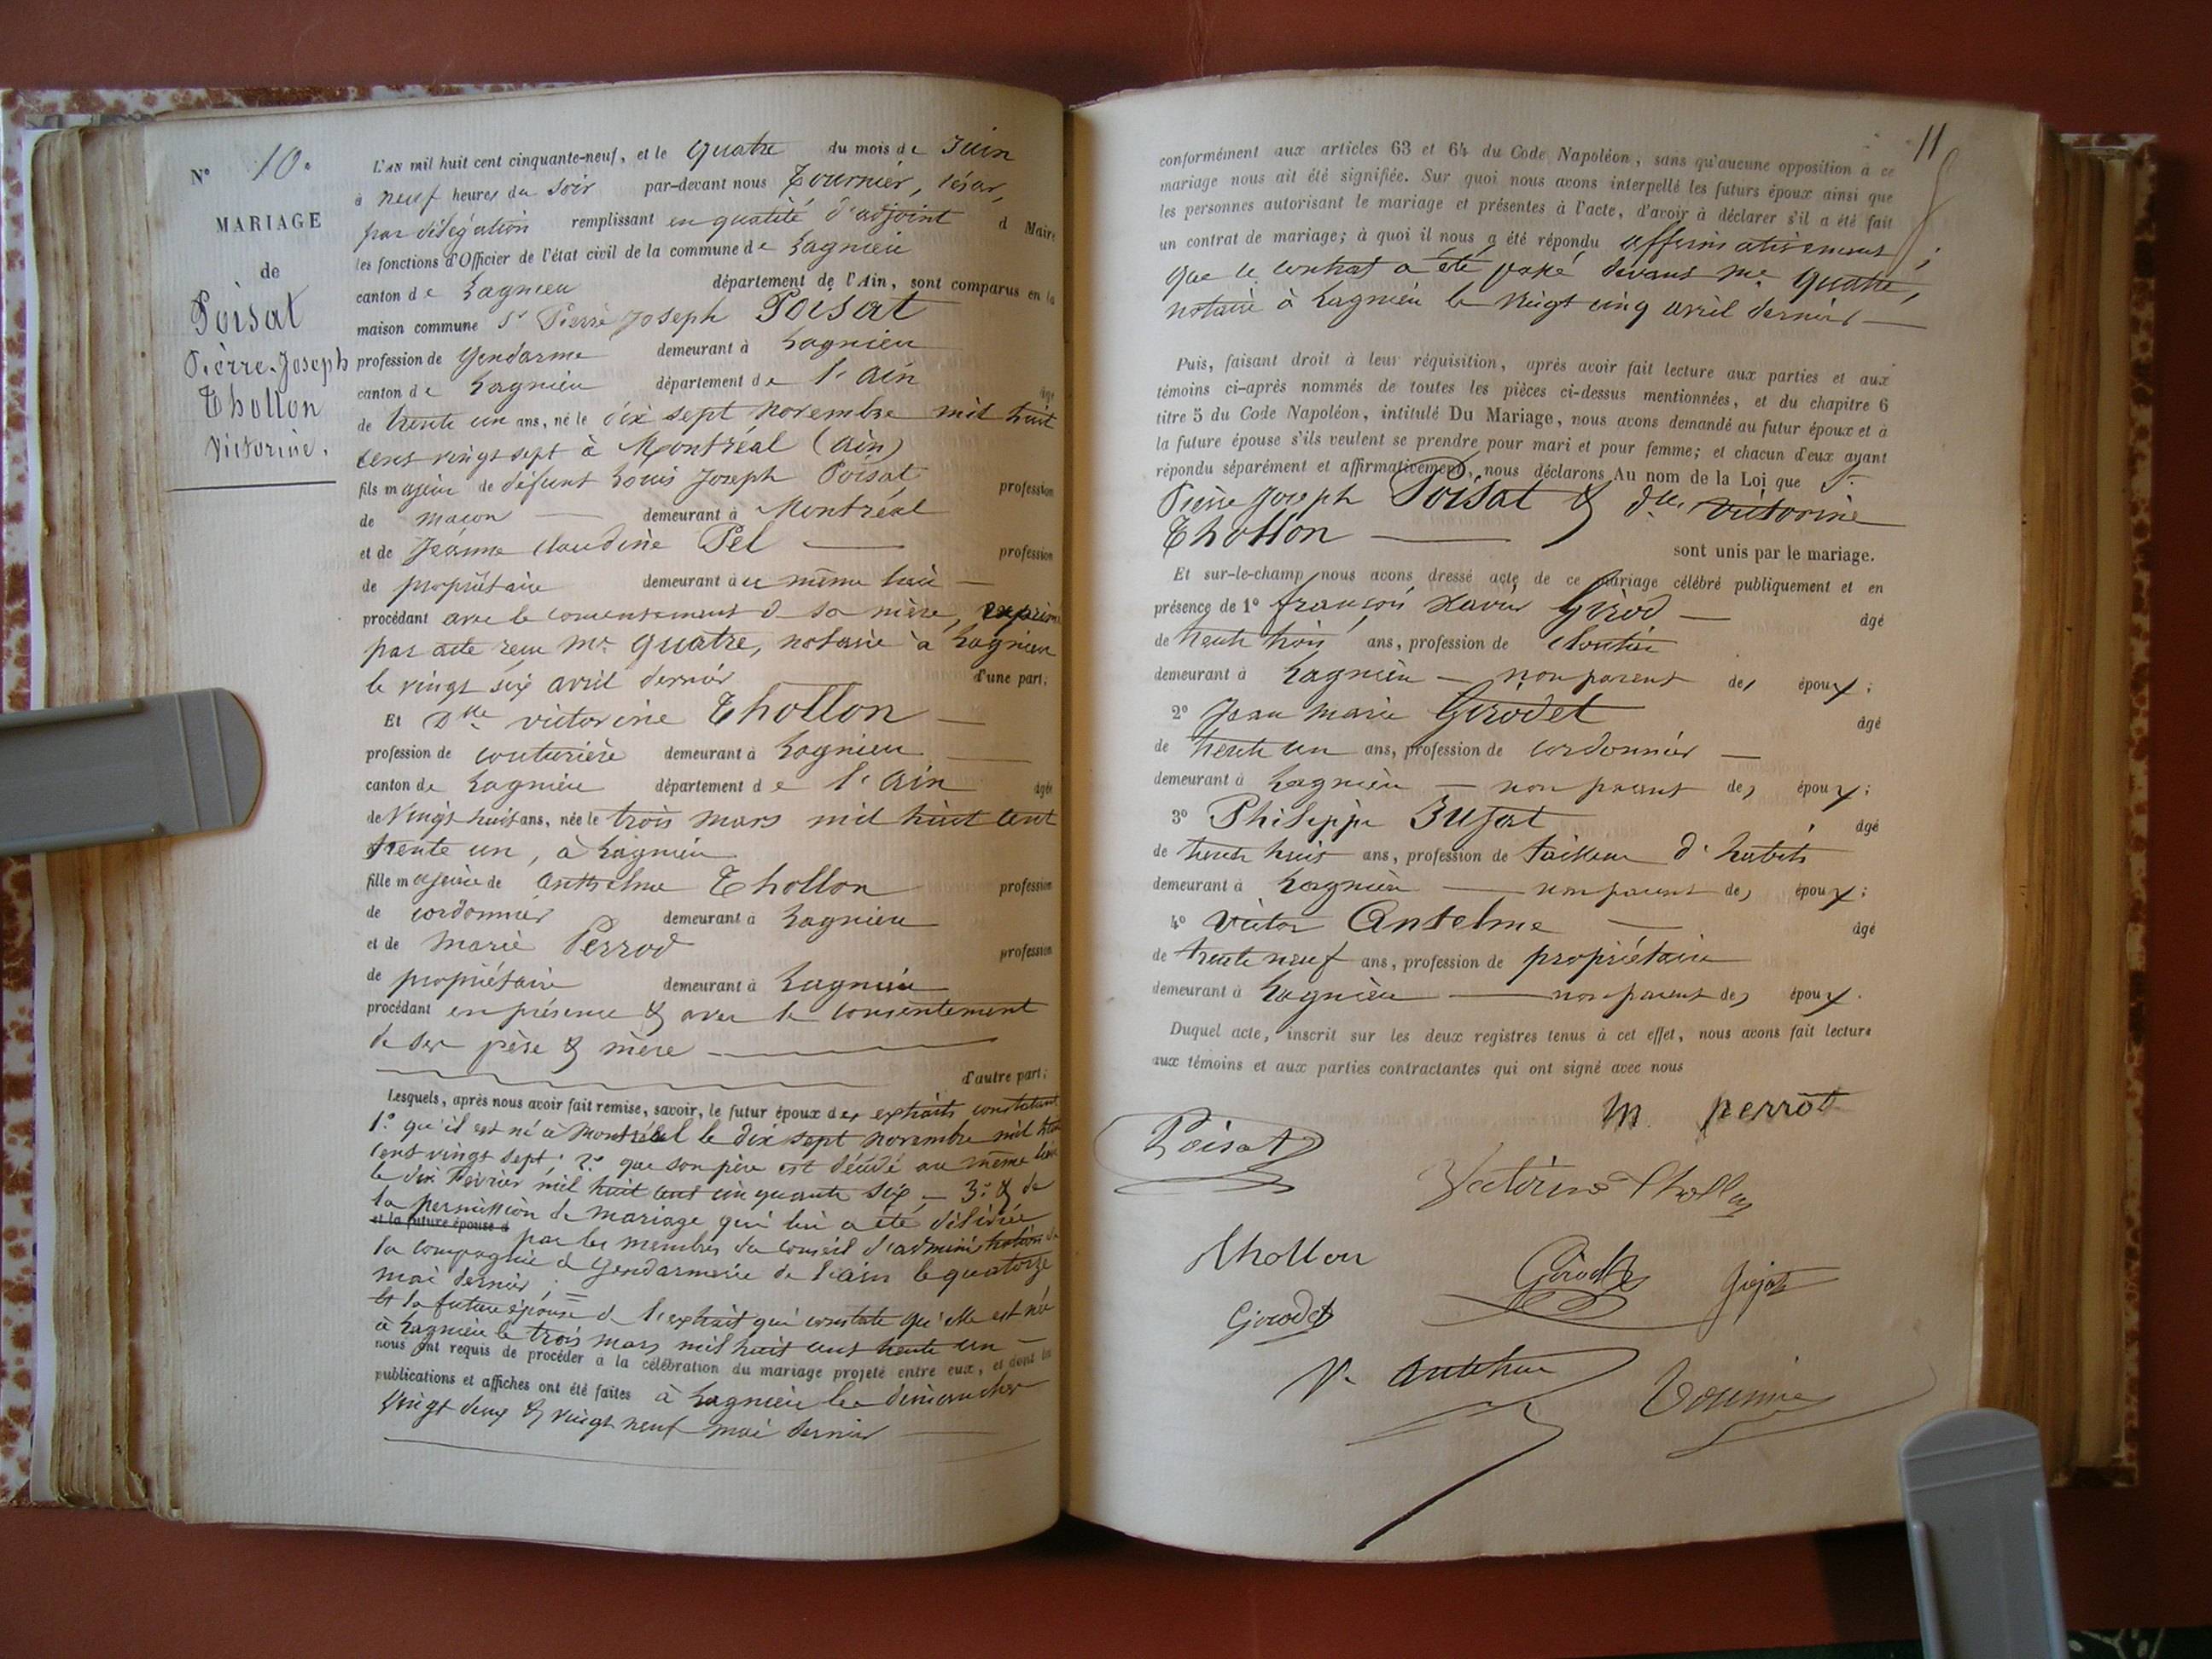 N° 10.
MARIAGE
de
Poisat
Pierre-Joseph
Thollon
Victorine.
L'AN mil huit cent cinquante-neuf, et le quatre du mois de Juin
à neuf heures du soir par-devant nous Tournier, César,
par délégation remplissant en qualité d'adjoint d Maire
les fonctions d'Officier de l'état civil de la commune de Lagnieu
canton de Lagnieu département de l'Ain, sont comparus en la
maison commune Sr Pierre Joseph Poisat
profession de Gendarme demeurant à Lagnieu
canton de Lagnieu département de l'Ain âgé
de trente un ans, né le dix sept novembre mil huit
cent vingt sept à Montréal (Ain)
fils majeur de défunt Louis Joseph Poisat profession
de maçon demeurant à Montréal
et de Jeanne Claudine Pel profession
de propriétaire demeurant à ce même lieu
procédant avec le consentement de sa mère,
par acte reçu Me Quatre, notaire à Lagnieu
le vingt six avril dernier d'une part;
Et Dlle victorine Thollon
profession de couturière demeurant à Lagnieu
canton de Lagnieu département de l'Ain âgée
de vingt huit ans, née le trois mars mil huit cent
trente un, à Lagnieu
fille majeure de Anthelme Thollon profession
de cordonnier demeurant à Lagnieu
et de Marie Perrod profession
de propriétaire demeurant à Lagnieu
procédant en présence & avec le consentement
de ses père & mère
d'autre part;
Lesquels, après nous avoir fait remise, savoir, le futur époux des extraits constatant
1° qu'il est né à Montréal le dix sept novembre mil huit
cent vingt sept. 2° que son père est décédé au même lieu
le dix Février mil huit cent cinquante six - 3° & de
la permission de mariage qui lui a été délivrée
et la future épouse d par les membres du conseil d'administration de
la compagnie de Gendarmerie de l'Ain le quatorze
mai dernier.
Et la future épouse de l'extrait qui constate qu'elle est née
à Lagnieu le trois mars mil huit cent trente un
nous ont requis de procéder à la célébration du mariage projeté entre eux, et dont les
publications et affiches ont été faites à Lagnieu les dimanches
vingt deux & vingt neuf mai dernier
11
conformément aux articles 63 et 64 du Code Napoléon, sans qu'aucune opposition à ce
mariage nous ait été signifiée. Sur quoi nous avons interpellé les futurs époux ainsi que
les personnes autorisant le mariage et présentes à l'acte, d'avoir à déclarer s'il a été fait
un contrat de mariage; à quoi il nous a été répondu affirmativement;
que le contrat a été passé devant Me Quatre,
notaire à Lagnieu le vingt cinq avril dernier
Puis, faisant droit à leur réquisition, après avoir fait lecture aux parties et aux
témoins ci-après nommés de toutes les pièces ci-dessus mentionnées, et du chapitre 6
titre 5 du Code Napoléon, intitulé Du Mariage, nous avons demandé au futur époux et à
la future épouse s'ils veulent se prendre pour mari et pour femme; et chacun d'eux ayant
répondu séparément et affirmativement, nous déclarons Au nom de la Loi que Sr
Pierre Joseph Poisat & dlle victorine
Thollon
sont unis par le mariage.
Et sur-le-champ nous avons dressé acte de ce mariage célébré publiquement et en
présence de 1° françois Xavier Girod âgé
de trente trois ans, profession de cloutier
demeurant à Lagnieu non parent des époux;
2° Jean Marie Girodet âgé
de trente un ans, profession de cordonnier
demeurant à Lagnieu non parent des époux;
3° Philippe Jujat âgé
de trente huit ans, profession de tailleur d'habits
demeurant à Lagnieu non parent des époux;
4° Victor Anselme âgé
de trente neuf ans, profession de propriétaire
demeurant à Lagnieu non parent des époux.
Duquel acte, inscrit sur les deux registres tenus à cet effet, nous avons fait lecture
aux témoins et aux parties contractantes qui ont signé avec nous
M perrot
Poisat
Victorine Thollon
Thollon
Girod
Jujat
Girodet
V.
Tournier